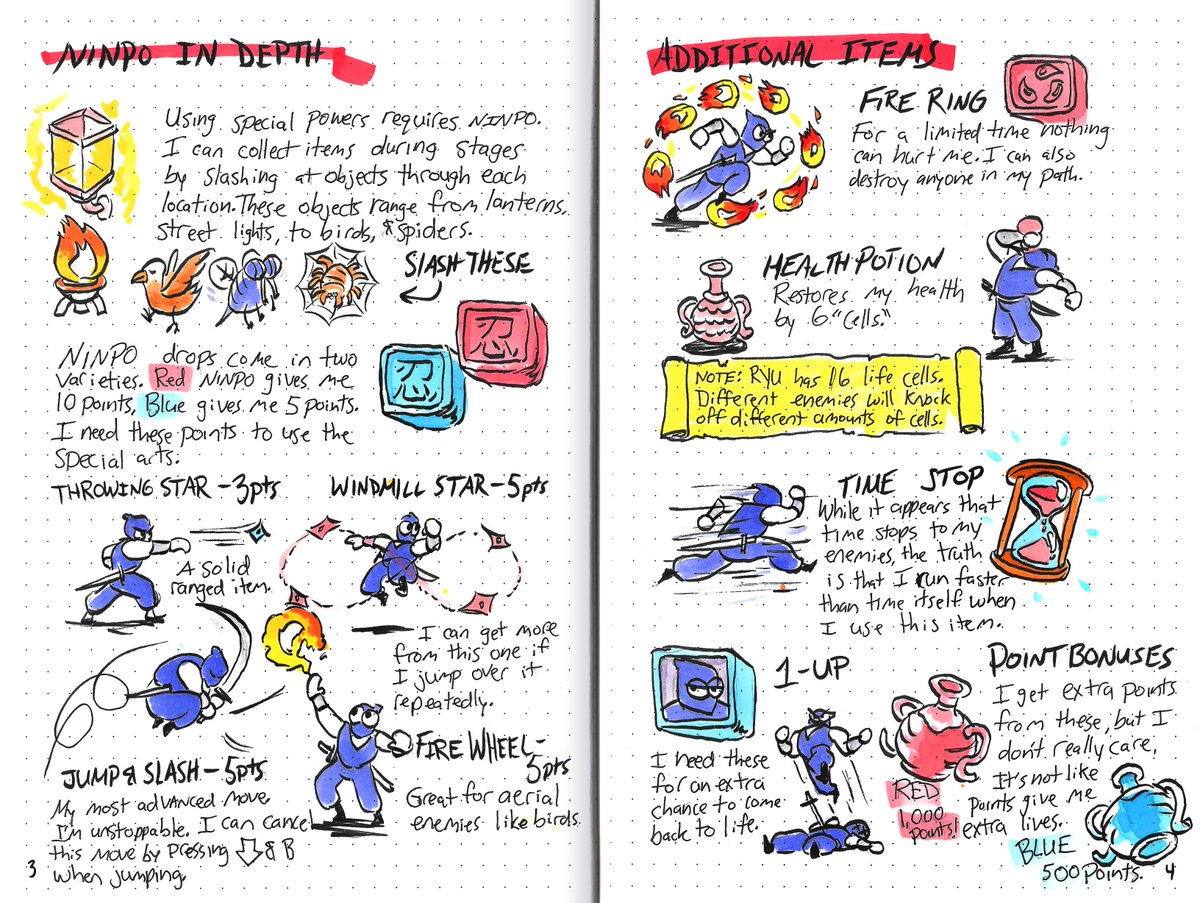 NINPO IN DEPTH
Using special powers requires NINPO.
I can collect items during stages
by slashing at objects through each
location. These objects range from lanterns,
street lights, to birds, & spiders.
SLASH THESE
忍
忍
NINPO drops come in two
varieties. Red NINPO gives me
10 points, Blue gives me 5 points.
I need these points to use the
special arts.
THROWING STAR - 3pts
A solid
ranged item.
WINDMILL STAR - 5pts
I can get more
from this one if
I jump over it
repeatedly.
JUMP & SLASH - 5pts
My most advanced move
I'm unstoppable. I can cancel
this move by pressing ⇩ & B
when jumping.
FIRE WHEEL -
5pts
Great for aerial
enemies like birds.
3
ADDITIONAL ITEMS
FIRE RING
For a limited time nothing
can hurt me. I can also
destroy anyone in my path.
HEALTH POTION
Restores my health
by 6 "cells."
NOTE: RYU has 16 life cells.
Different enemies will knock
off different amounts of cells.
TIME STOP
While it appears that
time stops to my
enemies, the truth
is that I run faster
than time itself when
I use this item.
1-UP
I need these
for an extra
chance to come
back to life.
POINT BONUSES
I get extra points
from these, but I
don't really care,
It's not like
points give me
extra lives.
RED
1,000
points!
BLUE
500 points.
4